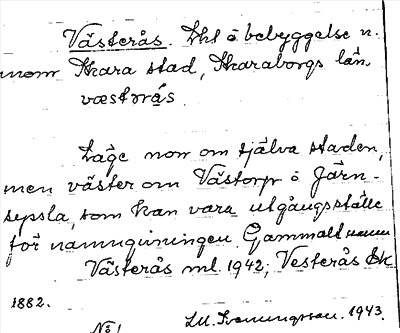 Västerås. Lht o bebyggelse n.
inom Skara stad, Skaraborgs län.
væstɷrås.
Läge norr om själva staden,
men väster om Västorp o Järn-
sysla, som kan vara utgångsställe
för namngivningen. Gammalt namn
Västerås ml. 1942; Vesterås EK
1882.
No 1 LM. Svenungsson. 1943.